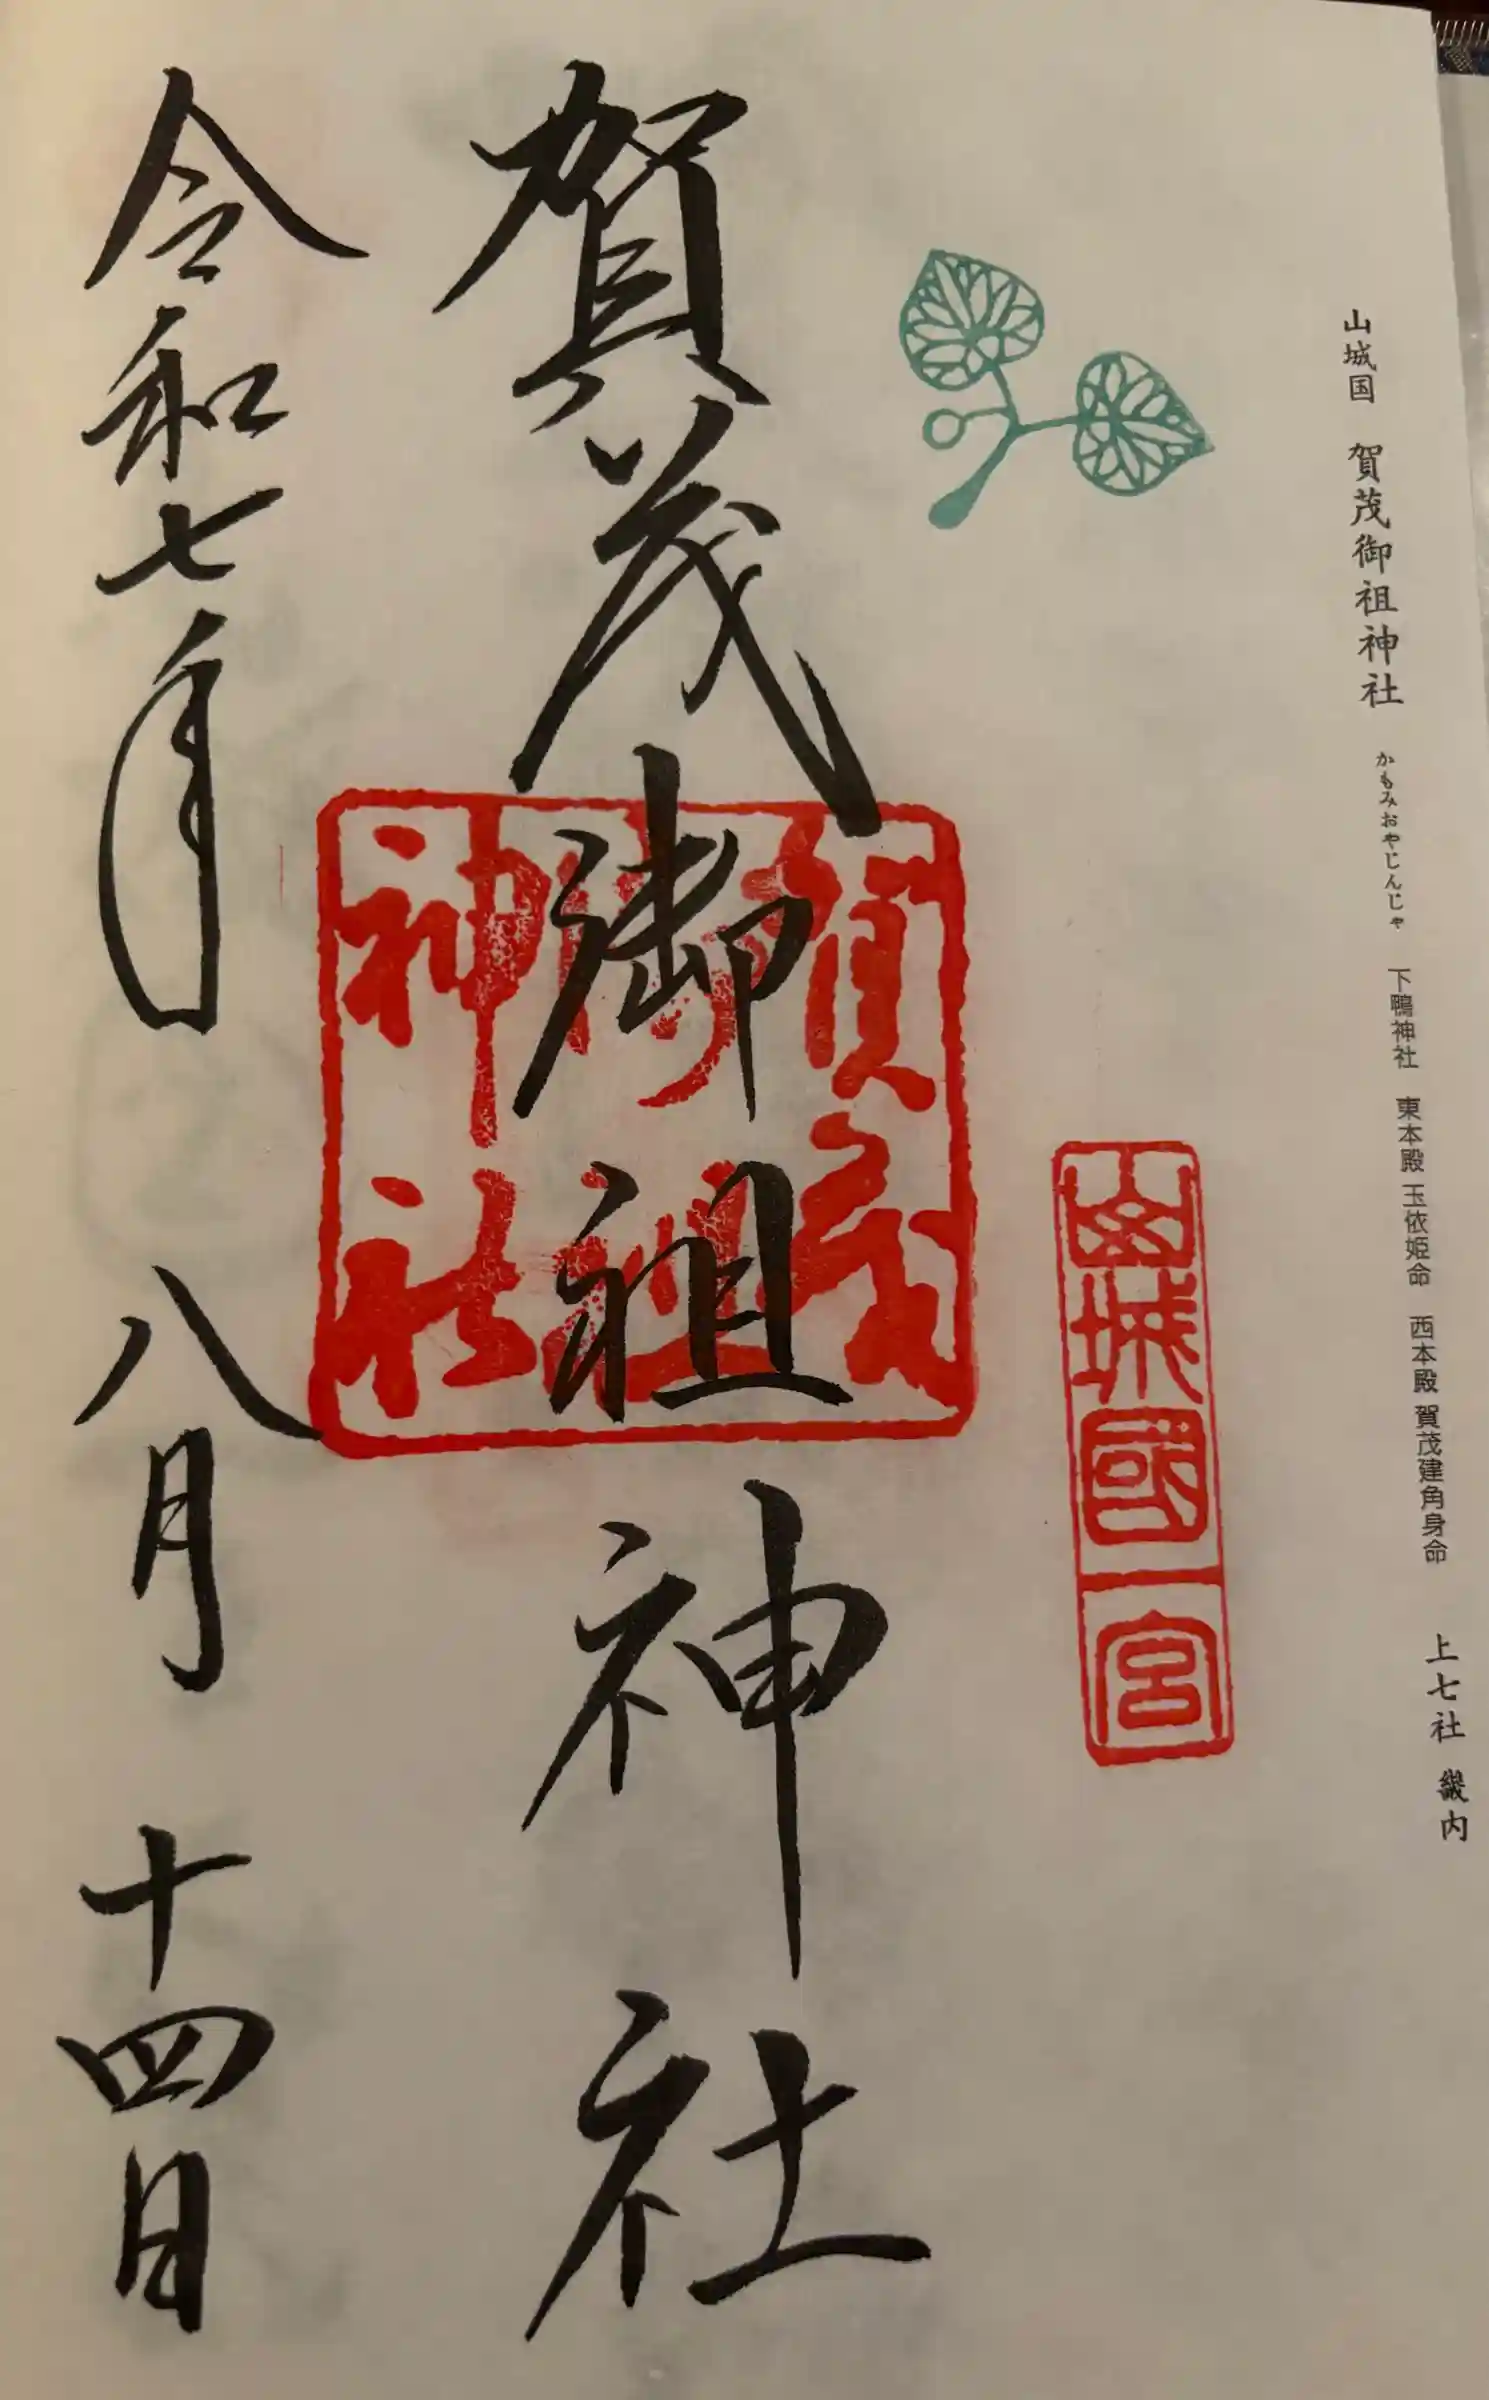 山城国 賀茂御祖神社 かもみおやじんじゃ 下鴨神社 東本殿 玉依姫命 西本殿 賀茂建角身命 上七社 畿内
山城國一宮
賀茂御祖神社
賀茂御祖神社
令和七年 八月 十四日